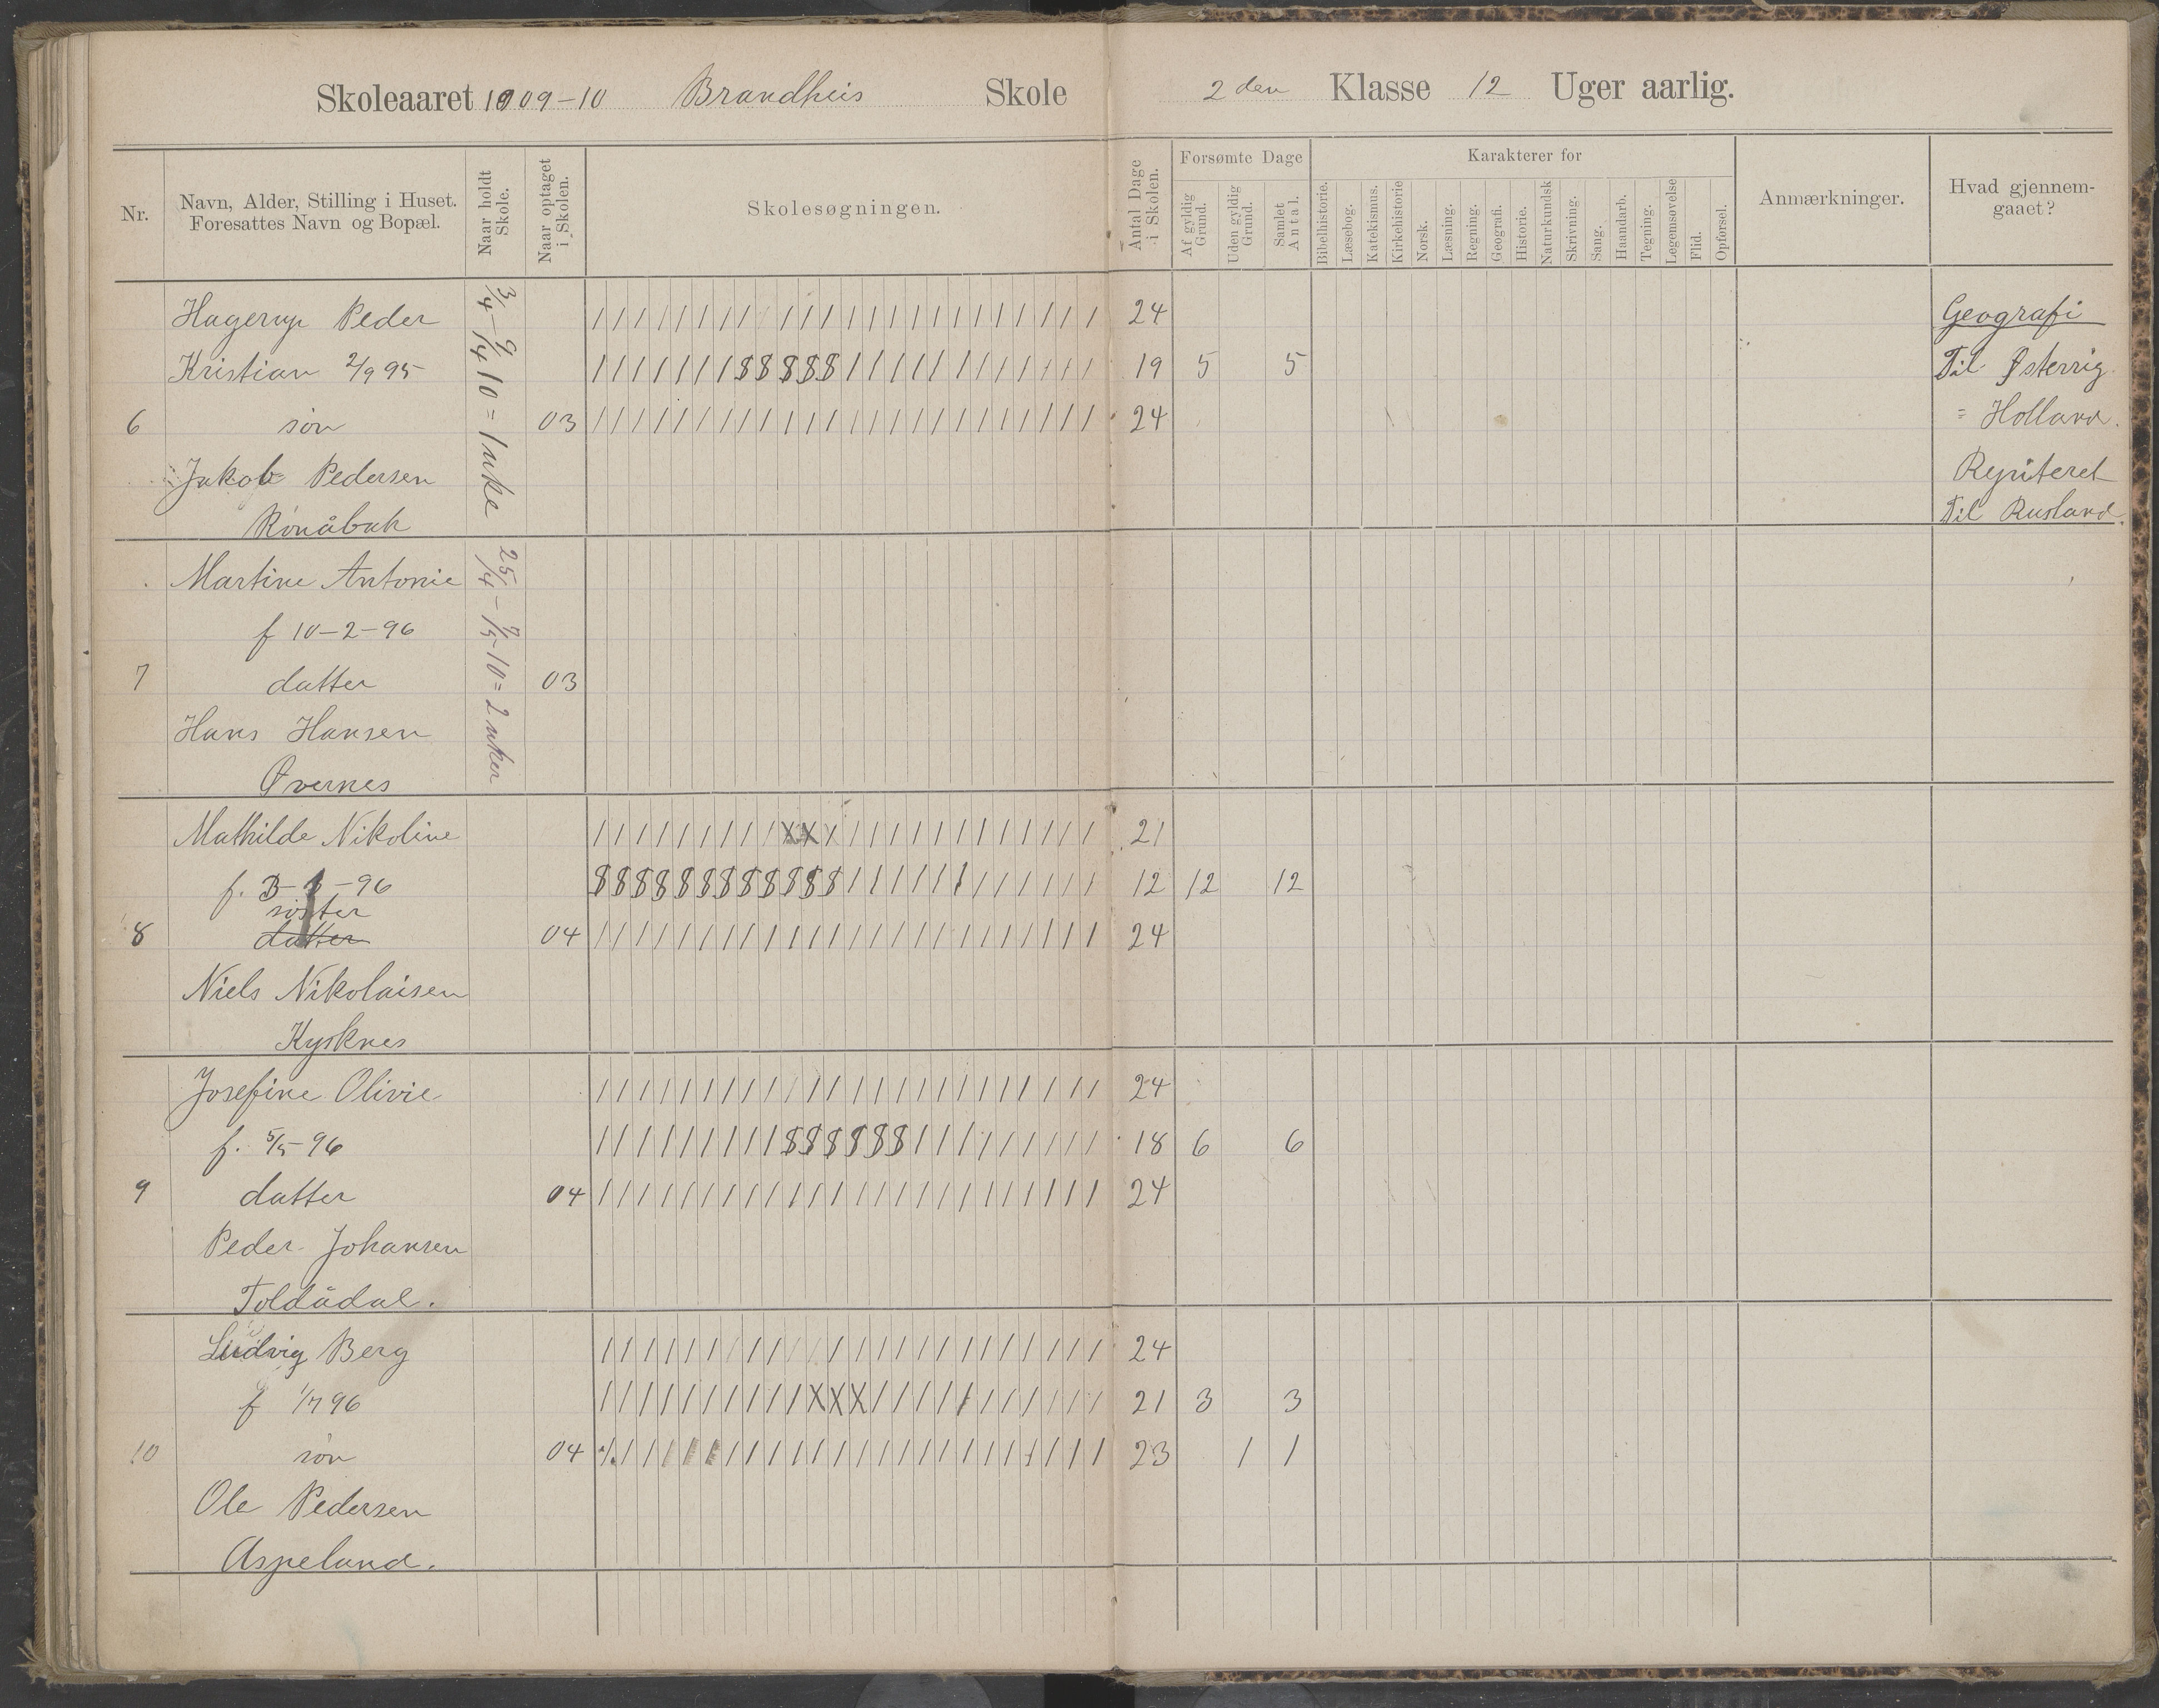 Skoleaaret 1909-10 Brandheis Skole 2den Klasse 12 Uger aarlig.
Nr.
Navn, Alder, Stilling i Huset. Foresattes Navn og Bopæl.
Naar holdt Skole.
Naar optaget i Skolen.
Skolesøgningen.
Antal Dage i Skolen.
Forsømte Dage
Af gyldig Grund.
Uden gyldig Grund.
Samlet Antal.
Karakterer for
Bibelhistorie.
Læsebog.
Katekismus.
Kirkehistorie
Norsk.
Læsning.
Regning.
Geografi.
Historie.
Naturkundsk
Skrivning.
Sang.
Haandarb.
Tegning.
Legemsøvelse
Flid.
Opførsel.
Anmærkninger.
Hvad gjennemgaaet?
3/4-9/4 10 = 1 uke
Hagerup Peder 24 Geografi
Kristian 2/9 95 19 5 5 Til Østerrig
6 søn 03 24 = Holland.
Jakob Pedersen Repiteret
Rönåbak Til Rusland.
25/4-7/5-10 = 2 uker
Martine Antonie
f 10-2-96
7 datter 03
Hans Hansen
Øvernes
Mathilde Nikoline 21
f. 3- -96 12 12 12
søster
8 datter 04 24
Niels Nikolaisen
Kysknes
Josefine Olivie 24
f. 5/5-96 18 6 6
9 datter 04 24
Peder Johansen
Toldådal.
Ludvig Berg 24
f 1/7 96 21 3 3
10 søn 04 23 1 1
Ole Pedersen
Aspeland.